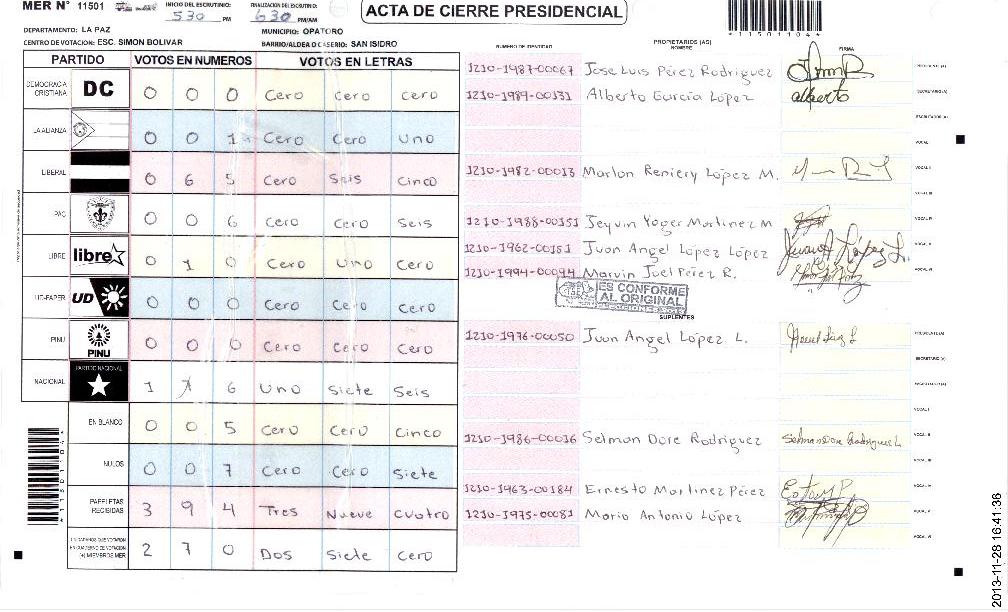 MER N° 11501
INICIO DEL ESCRUTINIO: 530 PM
FINALIZACION DEL ESCRUTINIO: 630 PM/AM
ACTA DE CIERRE PRESIDENCIAL
*11501104*
DEPARTAMENTO: LA PAZ
MUNICIPIO: OPATORO
CENTRO DE VOTACION: ESC. SIMON BOLIVAR
BARRIO/ALDEA O CASERIO: SAN ISIDRO
PARTIDO VOTOS EN NUMEROS VOTOS EN LETRAS
DEMOCRACIA CRISTIANA DC 0 0 0 Cero Cero Cero
LA ALIANZA 0 0 1 Cero Cero Uno
LIBERAL 0 6 5 Cero Seis Cinco
PAC 0 0 6 Cero Cero Seis
LIBRE libre 0 1 0 Cero Uno Cero
UD-FAPER UD 0 0 0 Cero Cero Cero
PINU PINU 0 0 0 Cero Cero Cero
NACIONAL PARTIDO NACIONAL 1 7 6 Uno Siete Seis
EN BLANCO 0 0 5 Cero Cero Cinco
NULOS 0 0 7 Cero Cero Siete
PAPELETAS RECIBIDAS 3 9 4 Tres Nueve Cuatro
CIUDADANOS QUE VOTARON EN CUADERNO DE VOTACION (+) MIEMBROS MER 2 7 0 Dos Siete Cero
NUMERO DE IDENTIDAD PROPIETARIOS (AS) NOMBRE FIRMA
1210-1987-00067 Jose Luis Pérez Rodriguez PRESIDENTE (A)
1210-1989-00131 Alberto Garcia López alberto SECRETARIO (A)
ESCRUTADOR (A)
VOCAL I
1210-1982-00013 Marlon Reniery López M. VOCAL II
VOCAL III
1210-1988-00151 Jeyuin Yoger Martinez M VOCAL IV
1210-1962-00151 Juan Angel López López Juan A López L. VOCAL V
1210-1994-00094 Marvin Joel Pérez R. VOCAL VI
ES CONFORME AL ORIGINAL
SUPLENTES
1210-1976-00050 Juan Angel López L. PRESIDENTE (A)
SECRETARIO (A)
ESCRUTADOR (A)
VOCAL I
1210-1986-00016 Selmon Dore Rodriguez VOCAL II
VOCAL III
1210-1963-00184 Ernesto Martinez Pérez VOCAL IV
1210-1975-00081 Mario Antonio López VOCAL V
VOCAL VI
2013-11-28 16:41:36